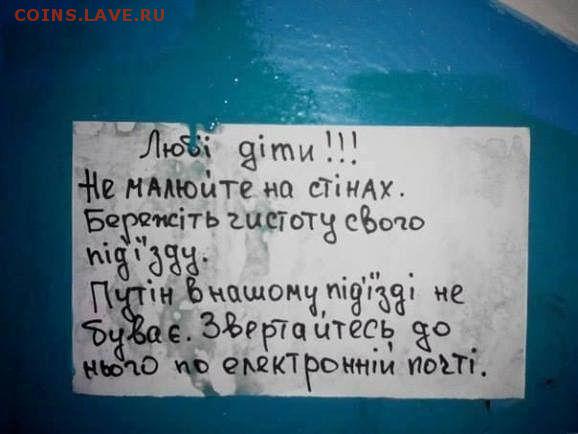 COINS.LAVE.RU
Любі діти!!!
Не малюйте на стінах.
Бережіть чистоту свого
під'їзду.
Путін в нашому під'їзді не
буває. Звертайтесь до
нього по електронній почті.